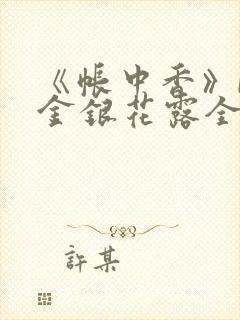 《帳中香》
金銀花露全
許某